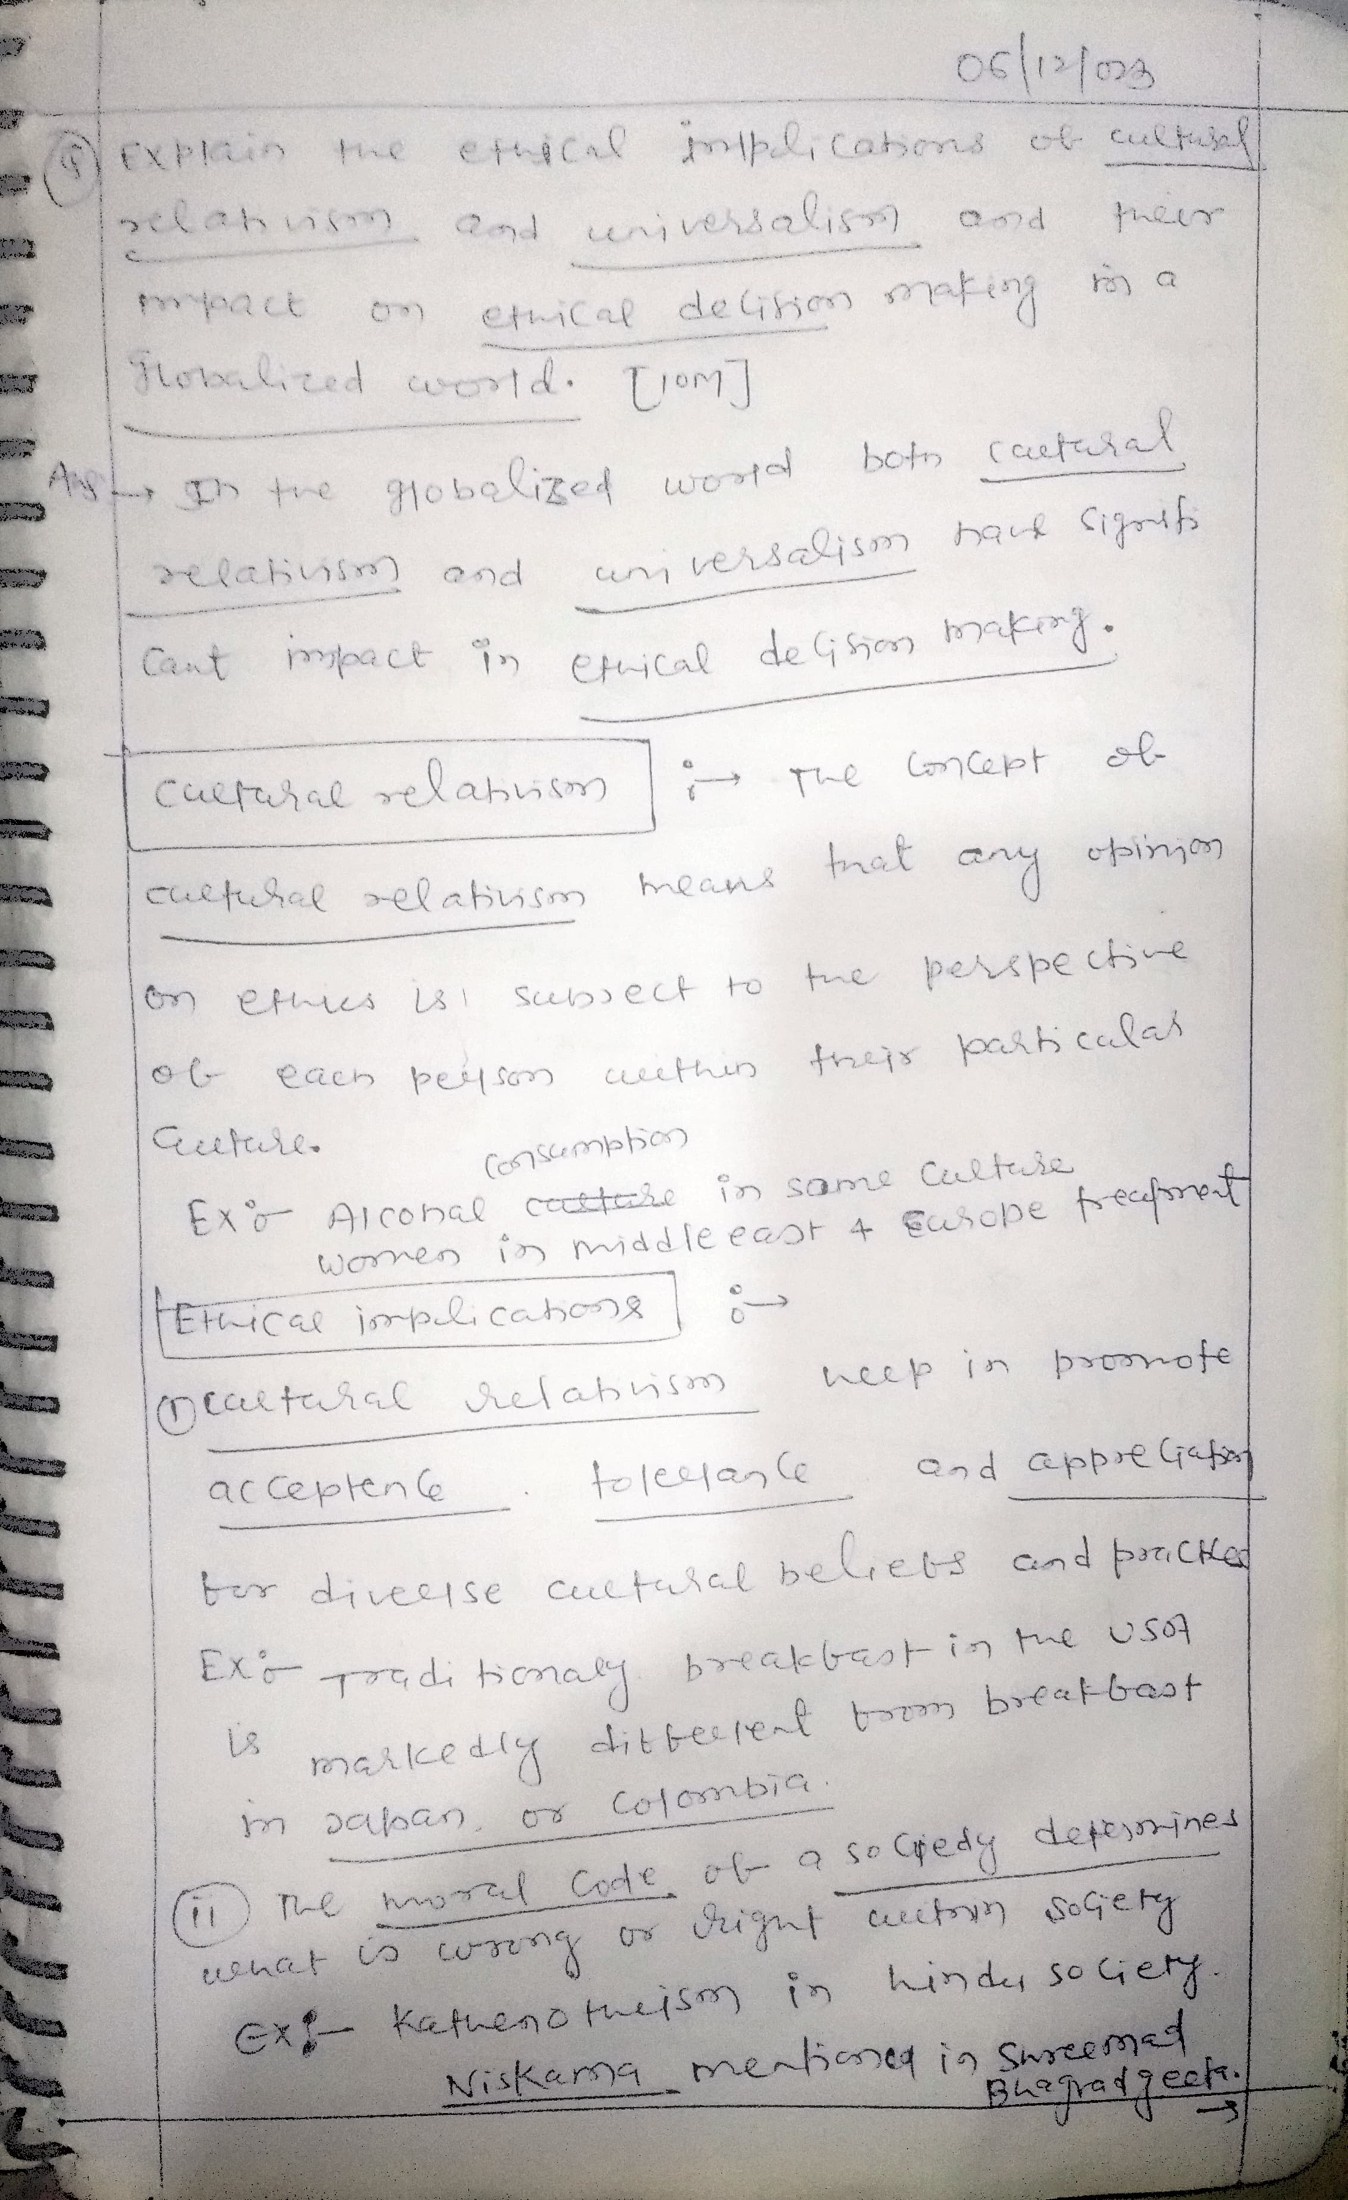 06/12/023
Explain the ethical implications of cultural
relativism and universalism and their
impact on ethical decision making in a
globalized world. [10M]
Ans → In the globalized world both cultural
relativism and universalism have signifi
cant impact in ethical decision making.
Cultural relativism :→ The concept of
cultural relativism means that any opinion
on ethics is subject to the perspective
of each person within their particular
culture.
consumption
Ex:- Alcohal culture in some culture
women in middle east & Europe treatment
Ethical implications :→
(i) cultural relativism help in promote
acceptence, tolerance and appreciation
for diverse cultural beliefs and practices
Ex:- Traditionaly breakfast in the USA
is markedly different from breakfast
in Japan, or colombia.
(ii) The moral code of a society determines
what is wrong or right within society
Ex:- Kathenotheism in hindu society.
Niskama mentioned in Shreemad
Bhagvadgeeta.
→